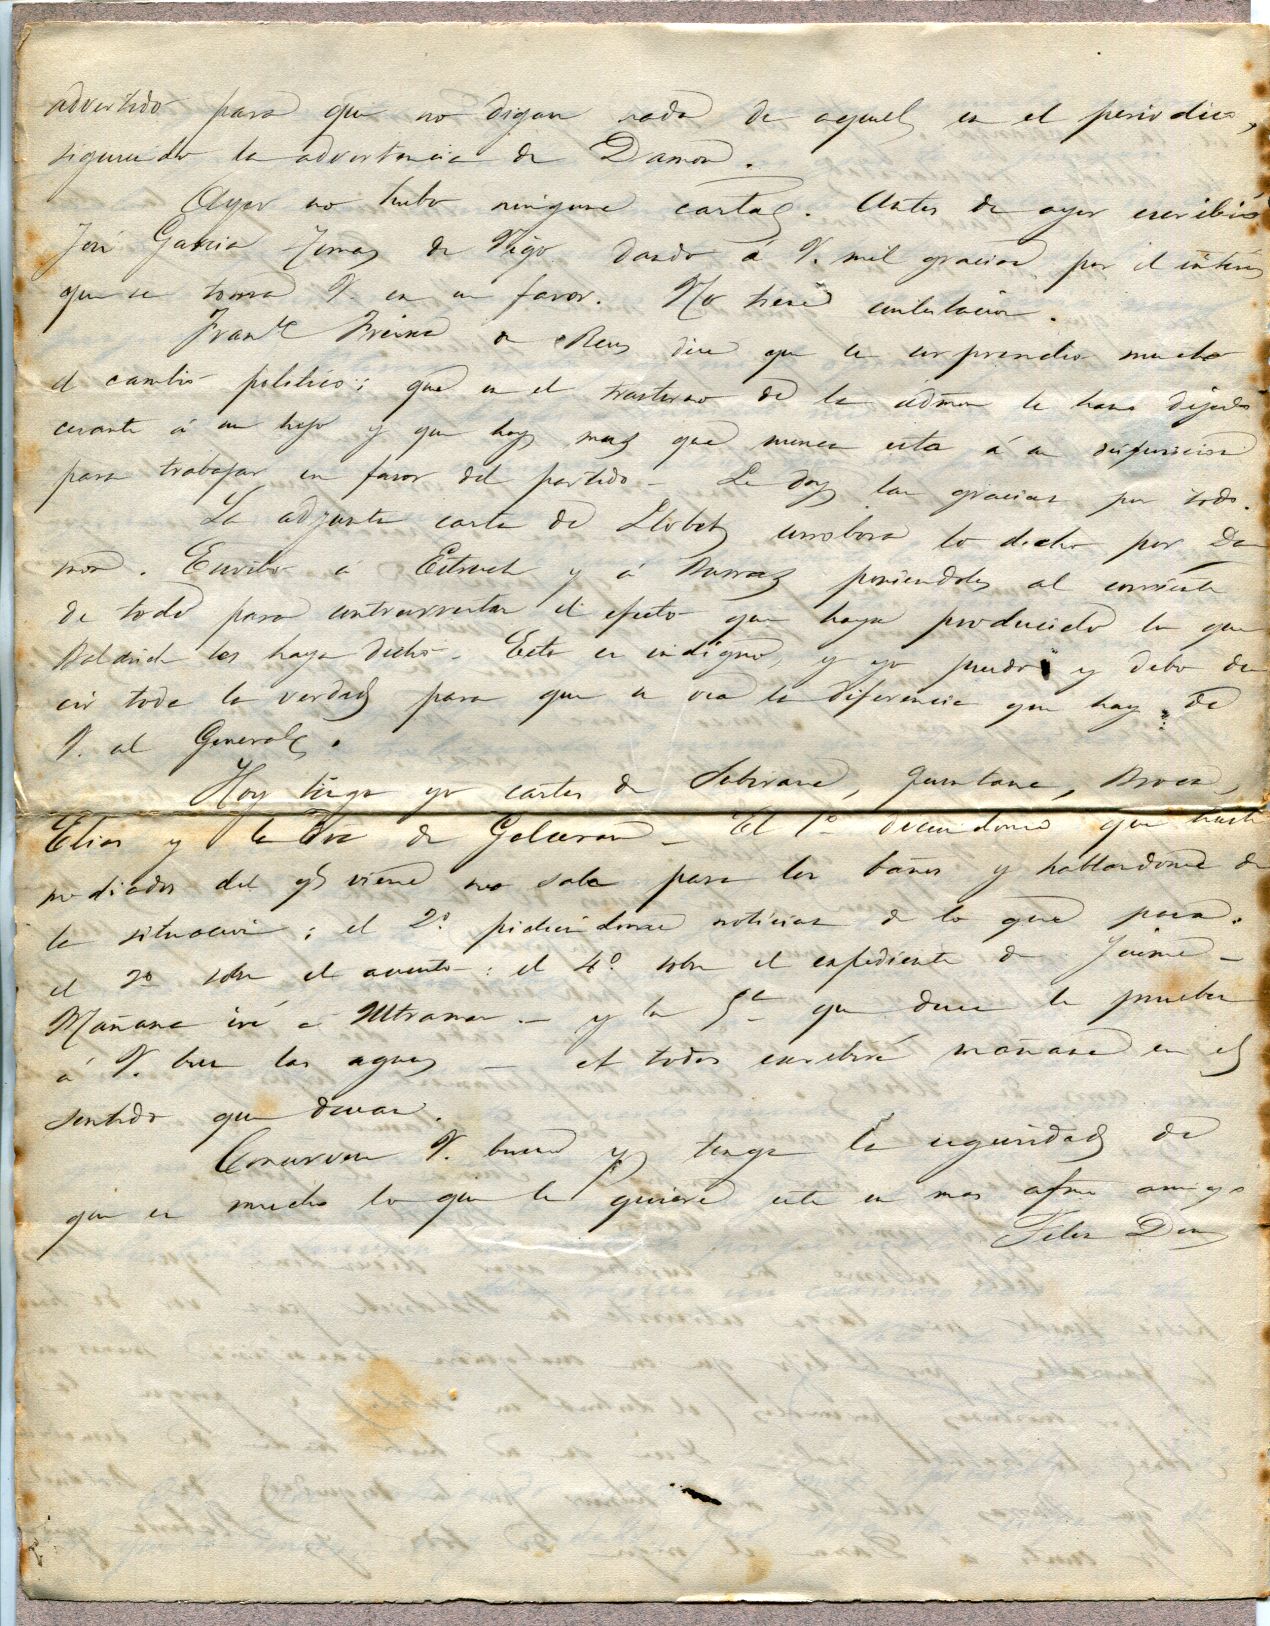 advertido para que no digan nada de aquel en el periodico,
siguiendo la advertencia de Damon.
Ayer no hubo ninguna carta. Antes de ayer escribió
José Garcia de Vigo dando á V. mil gracias por el interés
que se toma V. en su favor. No tiene contestacion.
Fran.co Freixa de Reus dice que le sorprendio mucho
el cambio politico; que en el trastorno de la admon le han dejado
cesante á su hijo y que hoy mas que nunca esta á su disposicion
para trabajar en favor del partido - Le doy las gracias por todo.
La adjunta carta de Llobet corrobora lo dicho por Da
mon. Escribo á Estruch y á poniendoles al corriente
de todo para contrarrestar el efecto que haya producido lo que
Baldrich les haya dicho - Esto es indigno, y yo puedo y debo de
cir toda la verdad para que se vea la diferencia que hay de
V. al General.
Hoy tengo yo cartas de Subirana, Quintana,
Elias y la de Galceran - El 1º diciendome que hasta
mediados del q viene no sale para los baños y hablandome de
la situacion; el 2º pidiendome noticias de lo que pasa.
el 3º sobre el asunto: el 4º sobre el expediente de Jaime -
Mañana iré á Ultramar - y la 5ª que dice le prueban
á V. bien las aguas - A todos escribiré mañana en el
sentido que desean.
Conservese V. bueno y tenga la seguridad de
que es mucho lo que le quiere este su mas afmo amigo
Felix